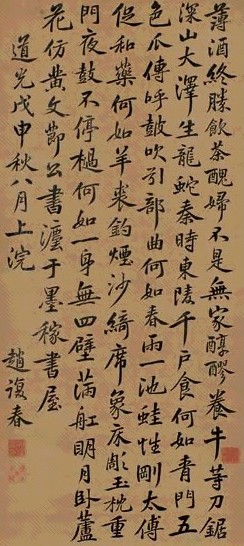 薄酒終勝飲茶醜婦不是無家醇醪養牛等刀鋸
深山大澤生龍蛇秦時東陵千戶食何如青門五
色瓜傳呼鼓吹引部曲何如春雨一池蛙性剛太傅
促和藥何如羊裘釣煙沙綺席象床彫玉枕重
門夜鼓不停撾何如一身無四壁滿舡明月臥蘆
花仿黃文節公書灋于墨稼書屋
道光戊申秋八月上浣
趙復春